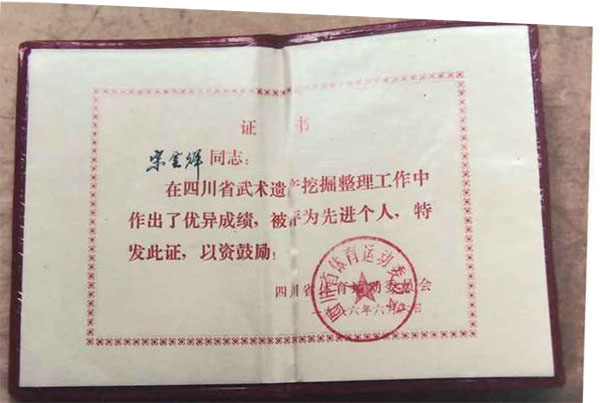 证 书
宋金辉同志：
在四川省武术遗产挖掘整理工作中
作出了优异成绩，被评为先进个人，特
发此证，以资鼓励；
四川省体育运动委员会
六年六
四川省体育运动委员会